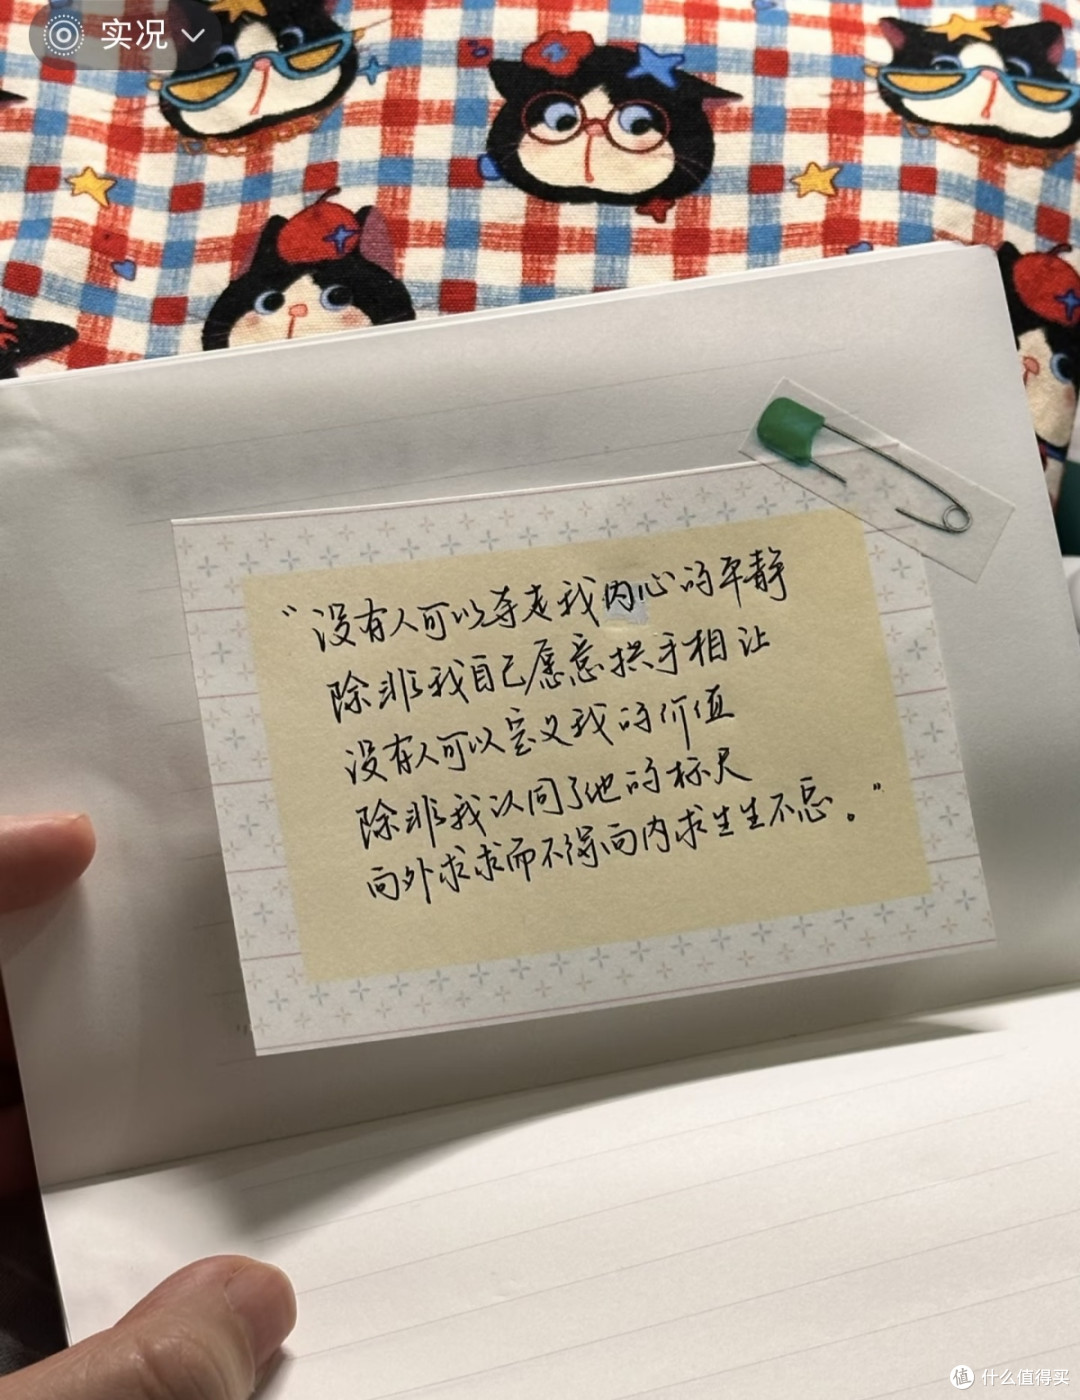 实况
“没有人可以夺走我内心的平静
除非我自己愿意拱手相让
没有人可以定义我的价值
除非我认同了他的标尺
向外求求而不得向内求生生不息。”
值 什么值得买